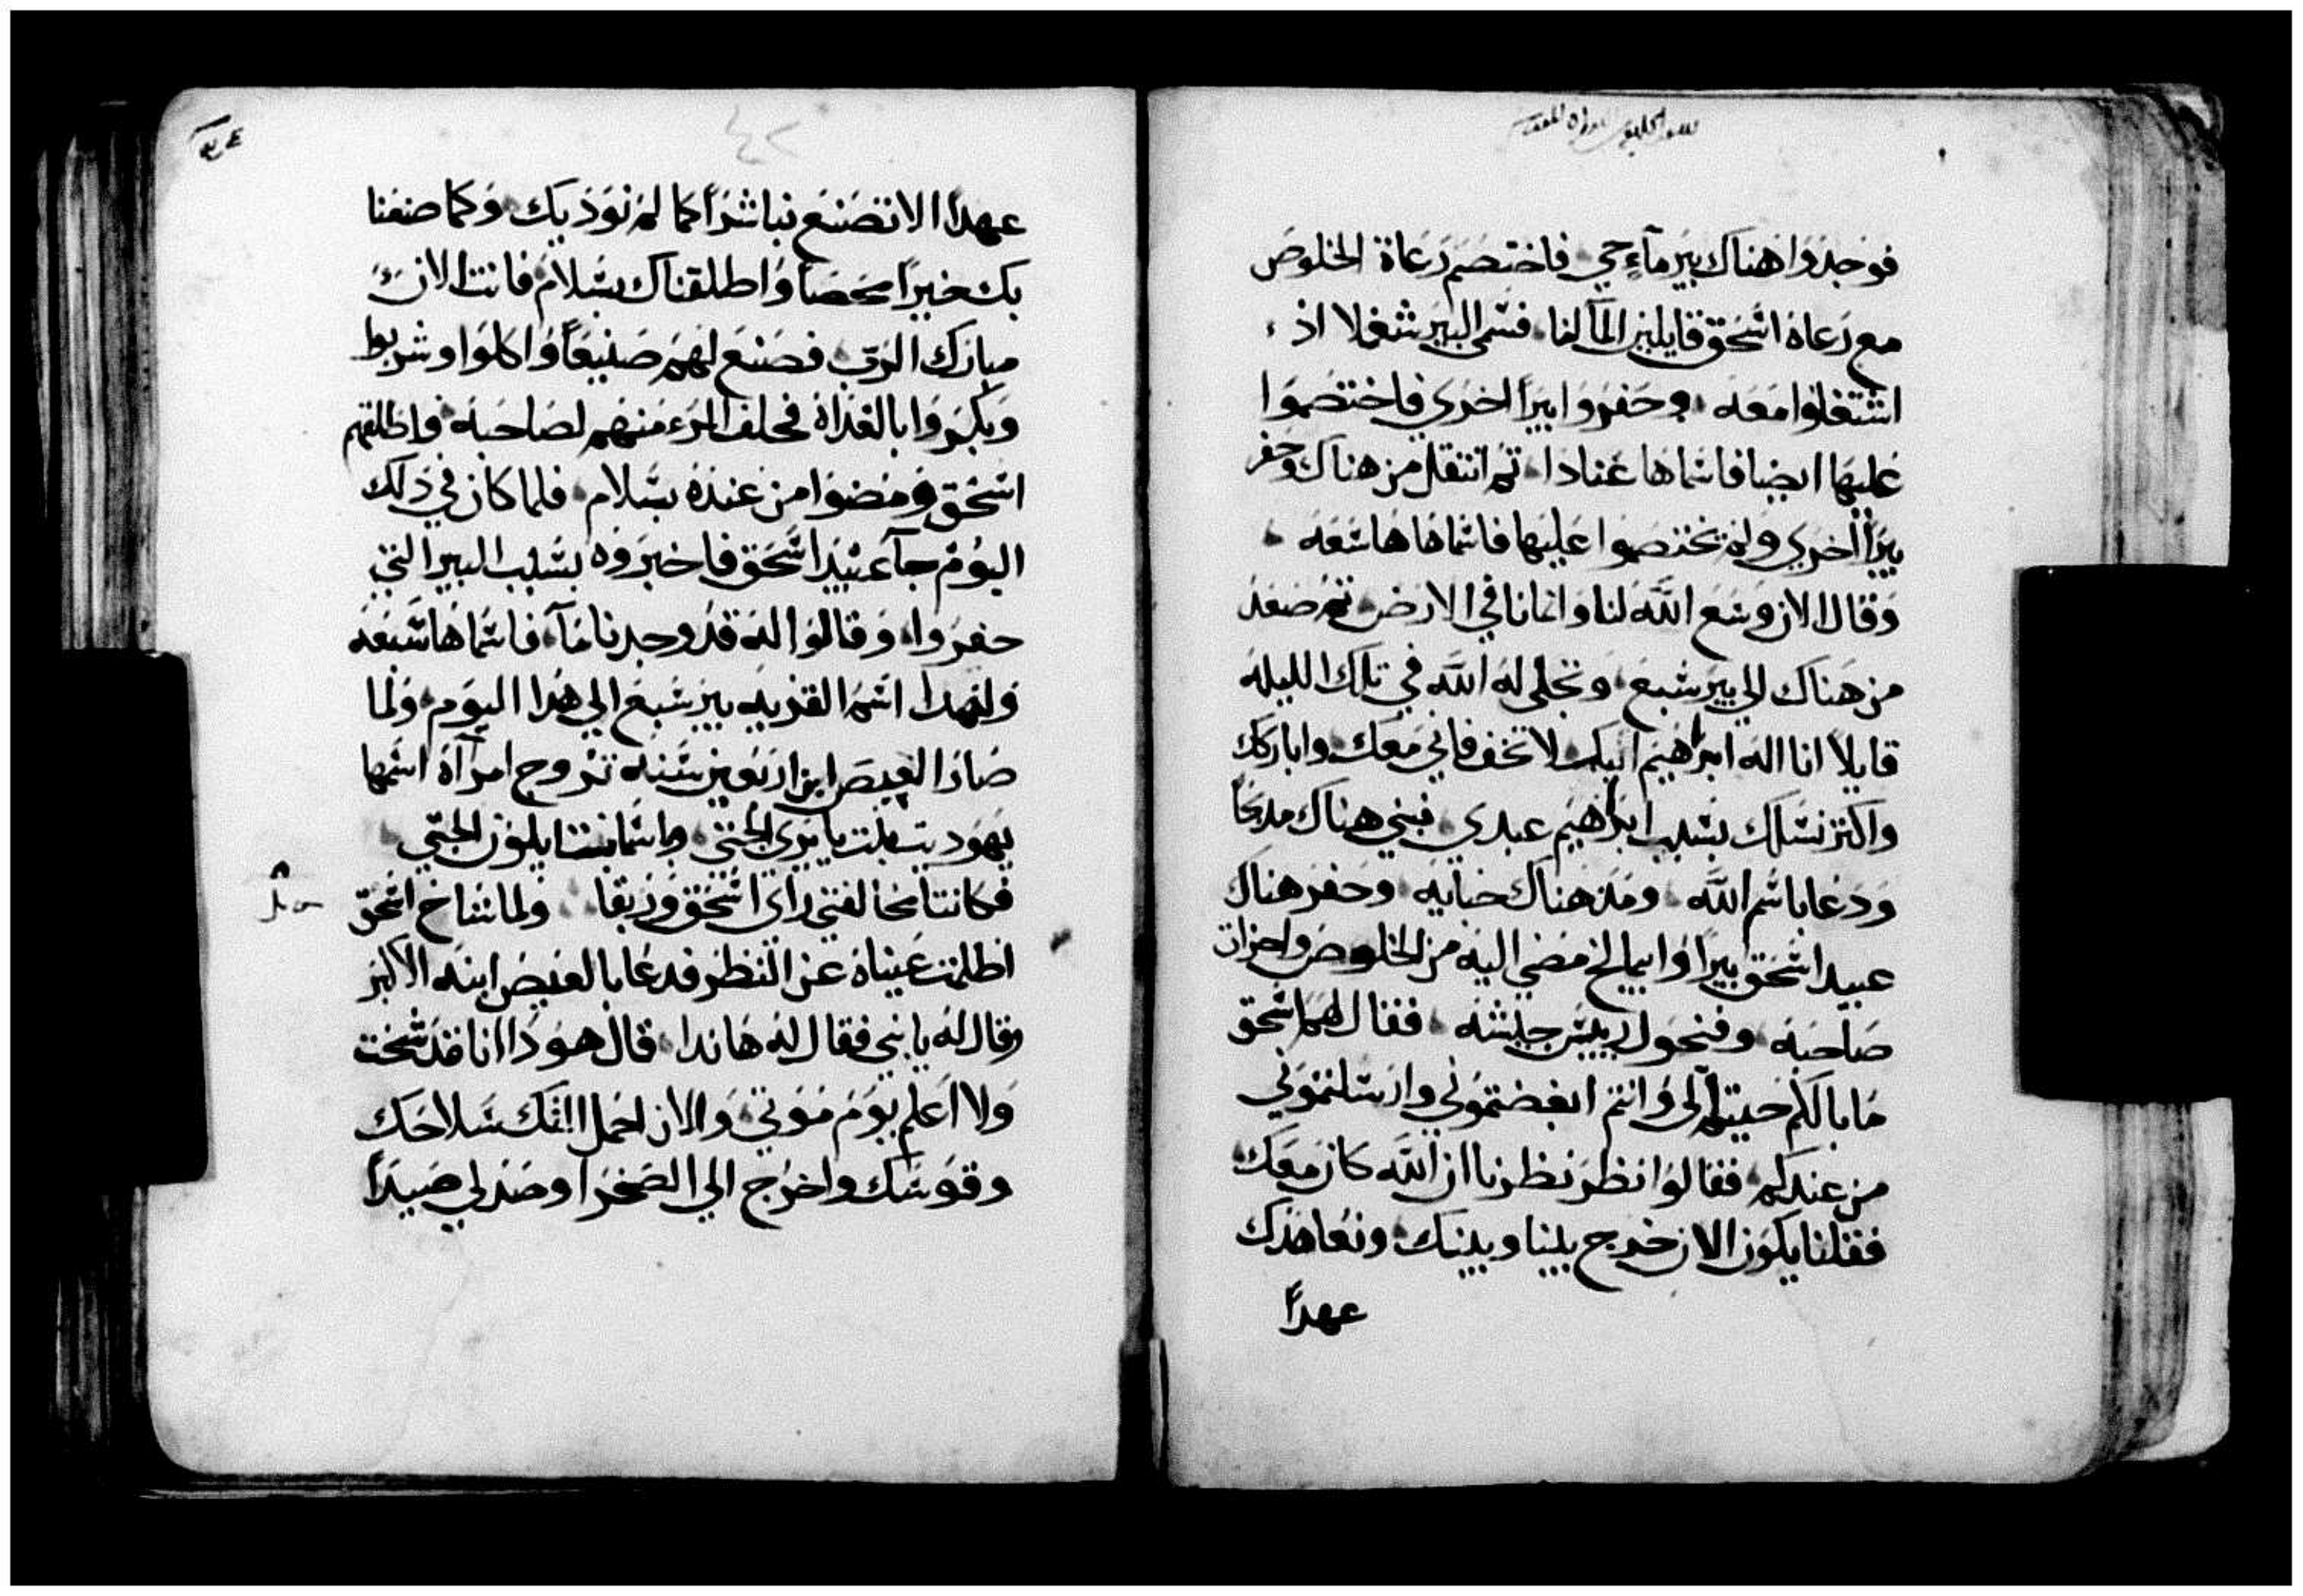 فوجدوا هناك بير مآءٍ حي فاختصم رعاة الخلوص
مع رعاه اسحق قايلين المآ لنا فسمى البير شغلا اذ
اشتغلوا معه وحفروا بيراً اخري فاختصموا
عليها ايضا فاسماها عنادا ثم انتقل من هناك وحفر
بيراً اخري ولم يختصموا عليها فاسماها سعه
وقال الان وسع الله لنا وانمانا في الارض ثم صعد
من هناك الي بير شبع وتجلى له الله في تلك الليله
قايلا انا اله ابراهيم ابيك لا تخف فاني معك واباركك
واكثر نسلك بسبب ابراهيم عبدي فبني هناك مدبحاً
ودعا باسم الله ومد هناك خبايه وحفر هناك
عبيد اسحق بيراً وابيمالخ مضي اليه من الخلوص واحزات
صاحبه وفنحول رييس جيشه فقال لهم اسحق
ما بالكم جيتم الى وانتم ابغضتموني وارسلتموني
من عندكم فقالوا نظر نظرنا ان الله كان معك
فقلنا يكون الان حرج بيننا وبينك ونعاهدك
عهداً
عهداً الا تصنع بنا شراً كما لم نوذيك وكما صنعنا
بك خيراً محضا واطلقناك بسلام فانت الان
مبارك الرب فصنع لهم صنيعاً واكلوا وشربوا
وبكروا بالغداه فحلف المرء منهم لصاحبه واطلقهم
اسحق ومضوا من عنده بسلام فلما كان في ذلك
اليوم جآ عبيد اسحق فاخبروه بسبب البير التي
حفروا وقالوا له قد وجدنا مآ فاسماها شبعه
ولهدا اسم القريه بير شبع الي هدا اليوم ولما
صار العيص ابن اربعين سنه تزوج امرآة اسمها
يهوديت بنت بايري الحتي واسمانت ايلون الحتي
فكانتا مخالفتي راى اسحق وربقا ولما شاخ اسحق
اظلمت عيناه عن النظر فدعا بالعيص ابنه الاكبر
وقال له يا بني فقال له هاندا قال هودا انا قد شخت
ولا اعلم يوم موتي والان احمل اليك سلاحك
وقوسك واخرج الي الصحرا وصد لي صيداً